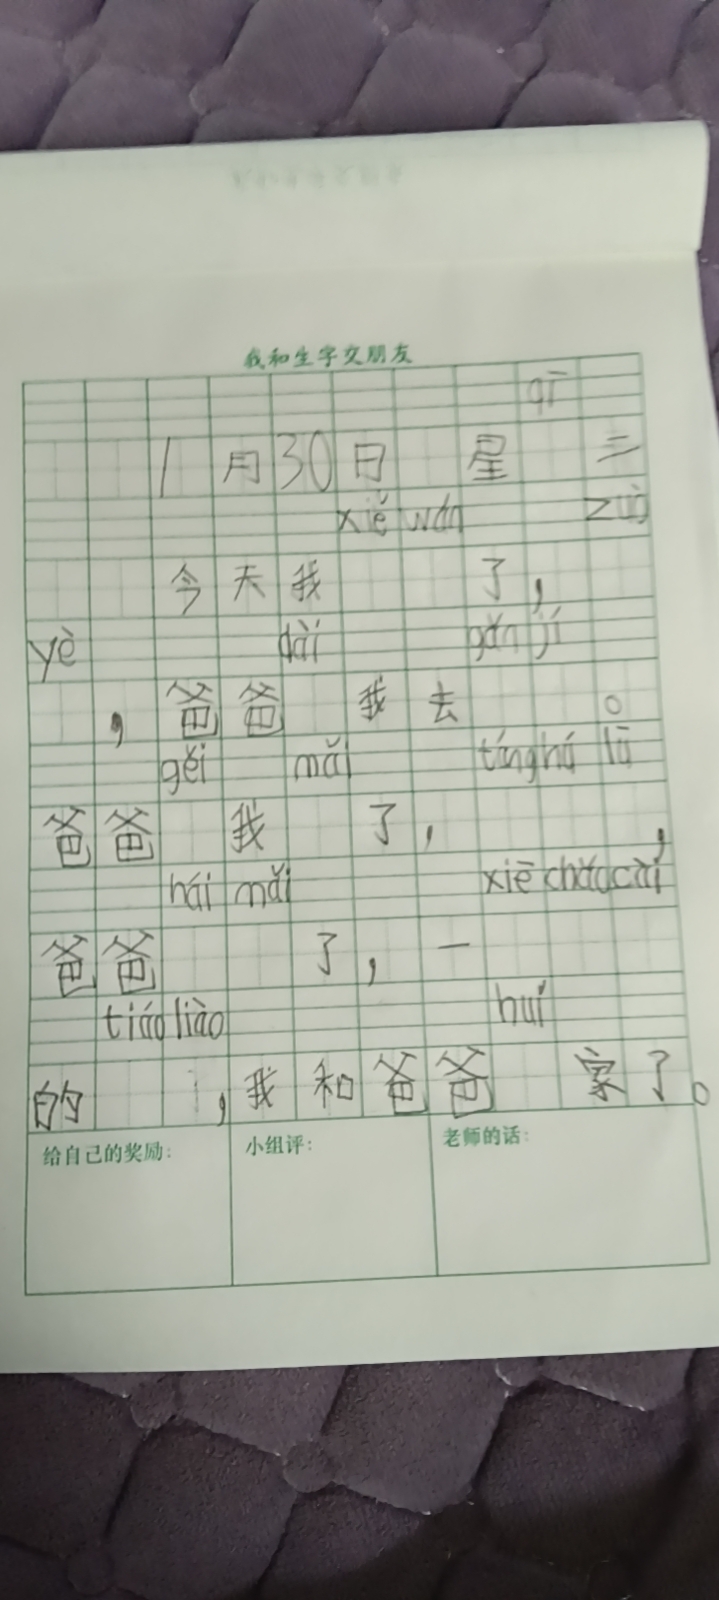 我和生字交朋友
qī
1月30日 星 三
xiě wán zuò
今天我 了，
yè dài gǎn jí
，爸爸 我去 。
gěi mǎi tíng hú lū
爸爸 我 了， ，
hái mǎi xiē chǎo cài
爸爸 了，一
tiáo liào huí
的 ，我和爸爸 家了。
给自己的奖励： 小组评： 老师的话：